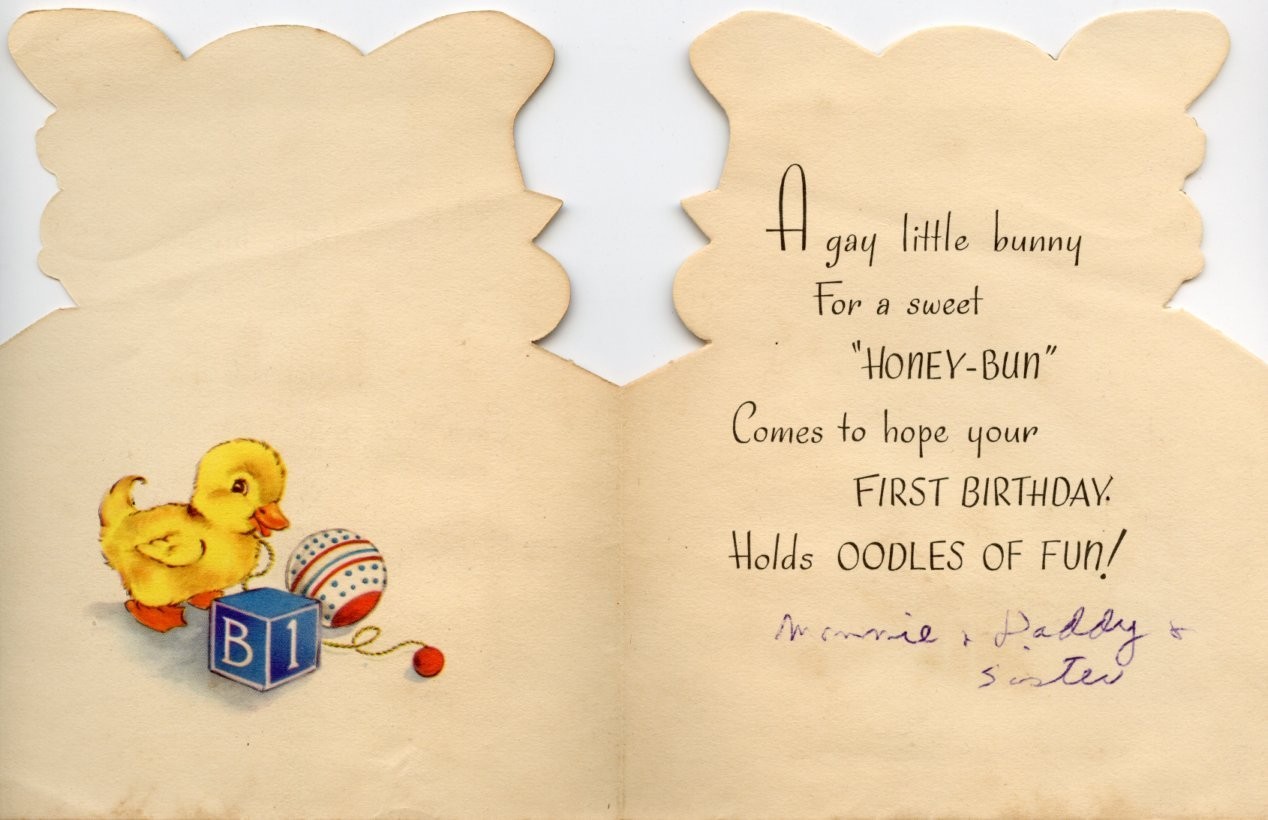 B 1
A gay little bunny
For a sweet
"HONEY-BUN"
Comes to hope your
FIRST BIRTHDAY.
Holds OODLES OF FUN!
Mommie + Daddy +
Sister